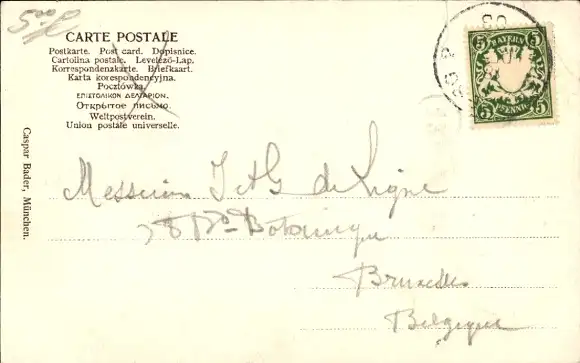 CARTE POSTALE
Postkarte. Post card. Dopisnice.
Cartolina postale. Levelező-Lap.
Korrespondenzkarte. Briefkaart.
Karta korespondencyjna.
Pocztówka.
ΕΠΙΣΤΟΛΙΚΟΝ ΔΕΛΤΑΡΙΟΝ.
Открытое письмо.
Weltpostverein.
Union postale universelle.
BAYERN
5 5
5 5
PFENNIG
Caspar Bader, München.
Messieurs J et G de Ligne
28 Bd Botanique
Bruxelles
Belgique